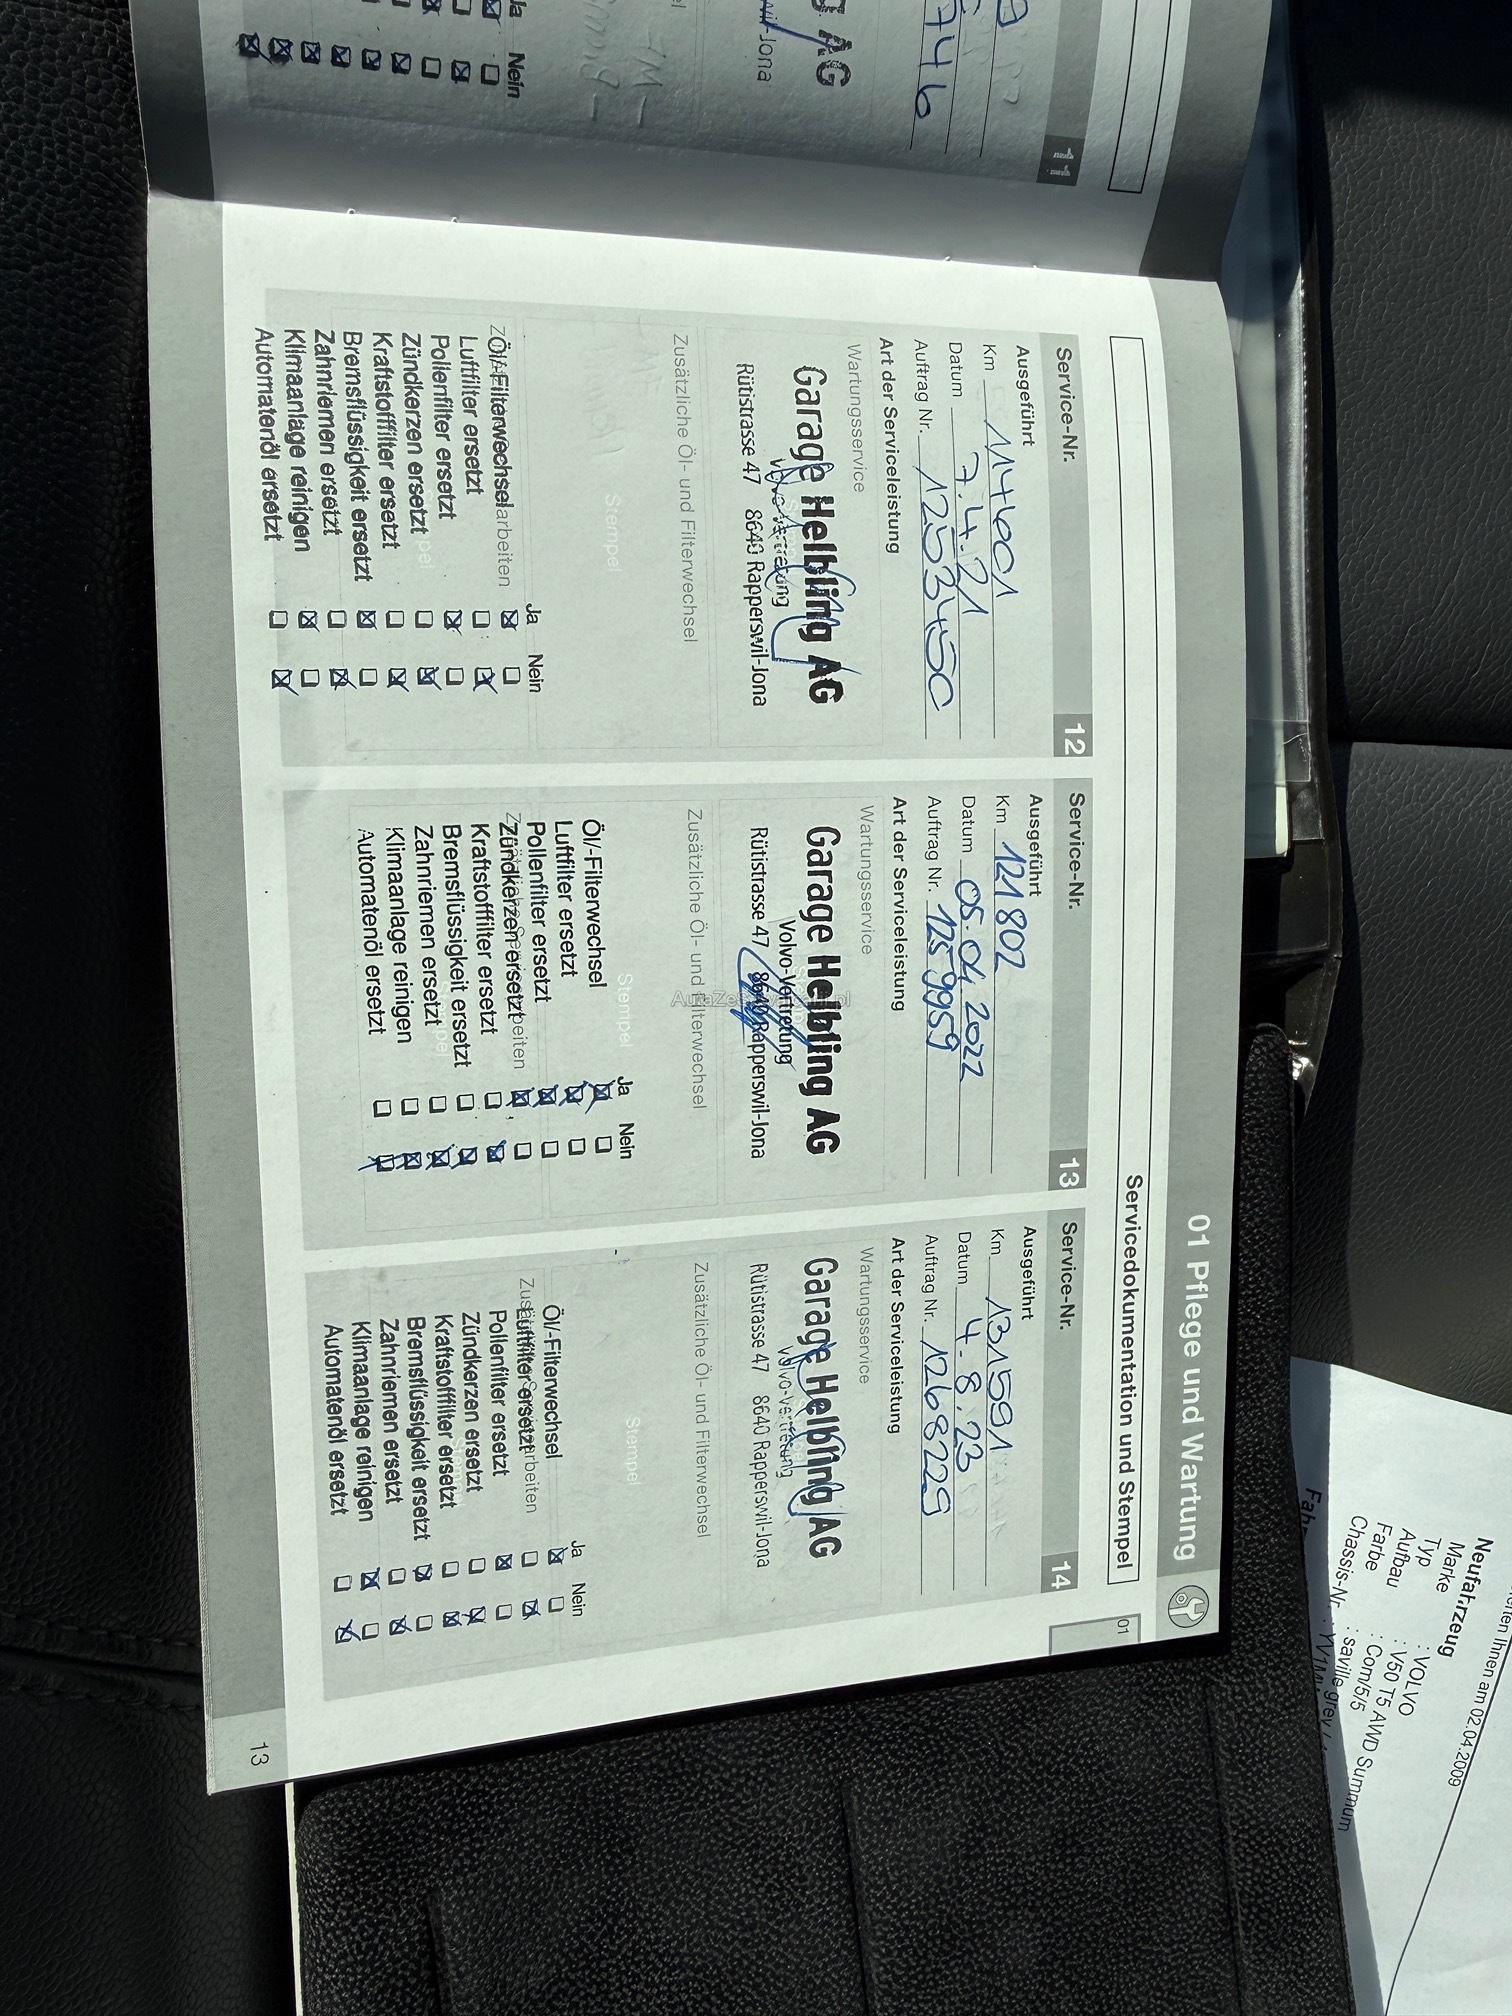 01 Pflege und Wartung
Servicedokumentation und Stempel
01
Service-Nr. 12
Ausgeführt
Km 114601
Datum 7.4.21
Auftrag Nr. 1253450
Art der Serviceleistung
Wartungsservice
Garage Helbling AG
Volvo-Vertretung
Rütistrasse 47 8640 Rapperswil-Jona
Zusätzliche Öl- und Filterwechsel
Stempel
Ja Nein
Öl/-Filterwechsel
Luftfilter ersetzt
Pollenfilter ersetzt
Zündkerzen ersetzt
Kraftstofffilter ersetzt
Bremsflüssigkeit ersetzt
Zahnriemen ersetzt
Klimaanlage reinigen
Automatenöl ersetzt
Service-Nr. 13
Ausgeführt
Km 121802
Datum 05.04.2022
Auftrag Nr. 1259959
Art der Serviceleistung
Wartungsservice
Garage Helbling AG
Volvo-Vertretung
Rütistrasse 47 8640 Rapperswil-Jona
Zusätzliche Öl- und Filterwechsel
Stempel
Ja Nein
Öl/-Filterwechsel
Luftfilter ersetzt
Pollenfilter ersetzt
Zündkerzen ersetzt
Kraftstofffilter ersetzt
Bremsflüssigkeit ersetzt
Zahnriemen ersetzt
Klimaanlage reinigen
Automatenöl ersetzt
Service-Nr. 14
Ausgeführt
Km 131591
Datum 4.8.23
Auftrag Nr. 1268229
Art der Serviceleistung
Wartungsservice
Garage Helbling AG
Volvo-Vertretung
Rütistrasse 47 8640 Rapperswil-Jona
Zusätzliche Öl- und Filterwechsel
Stempel
Ja Nein
Öl/-Filterwechsel
Luftfilter ersetzt
Pollenfilter ersetzt
Zündkerzen ersetzt
Kraftstofffilter ersetzt
Bremsflüssigkeit ersetzt
Zahnriemen ersetzt
Klimaanlage reinigen
Automatenöl ersetzt
13
11
746
AG
Jona
Ja Nein
Ihnen am 02.04.2009
Neufahrzeug
Marke : VOLVO
Typ : V50 T5 AWD Summum
Aufbau : Com/5/5
Farbe : saville grey
Chassis-Nr. :